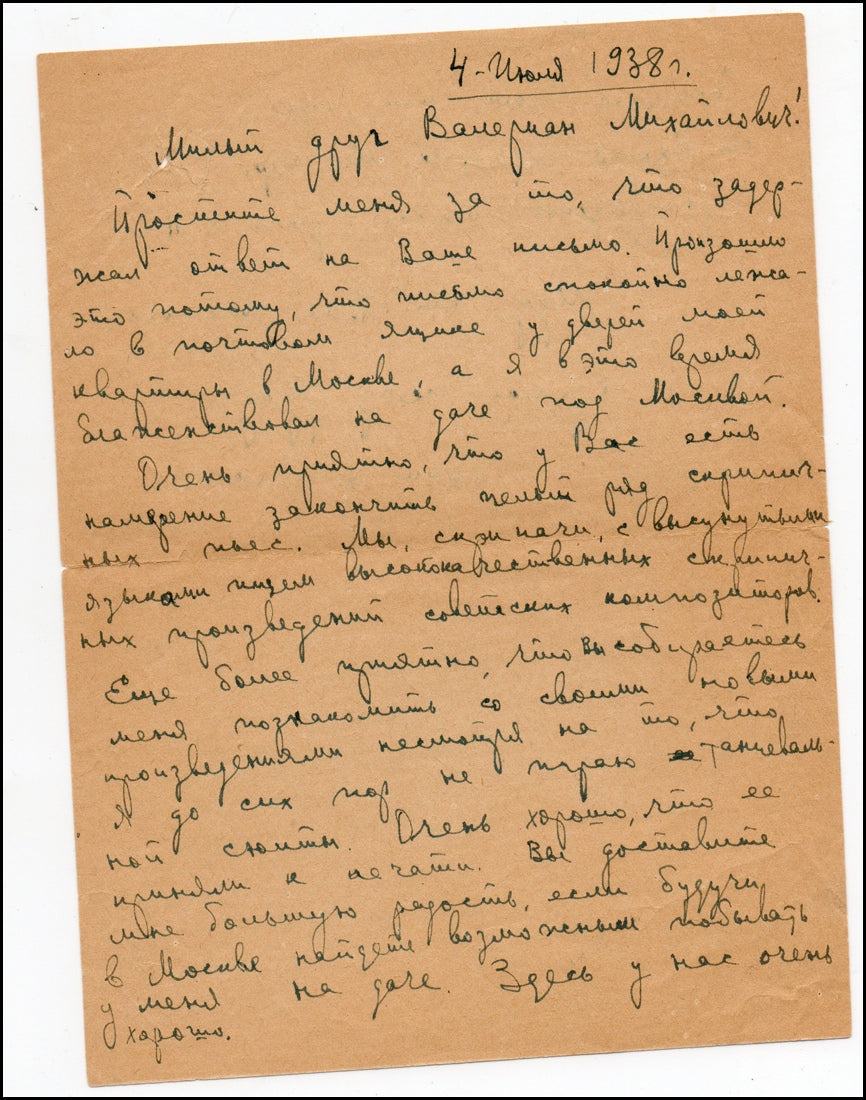 4-Июля 1938 г.
Милый друг Валериан Михайлович!
Простите меня за то, что задер-
жал ответ на Ваше письмо. Произошло
это потому, что письмо спокойно лежа-
ло в почтовом ящике у дверей моей
квартиры в Москве, а я в это время
блаженствовал на даче под Москвой.
Очень приятно, что у Вас есть
намерение закончить целый ряд скрипич-
ных пьес. Мы, скрипачи, с высунутыми
языками ищем высококачественных скрипич-
ных произведений советских композиторов.
Еще более приятно, что Вы собираетесь
меня познакомить со своими новыми
произведениями несмотря на то, что
я до сих пор не играю танцеваль-
ной сюиты. Очень хорошо, что ее
приняли к печати. Вы доставите
мне большую радость, если будучи
в Москве найдете возможным побывать
у меня на даче. Здесь у нас очень
хорошо.